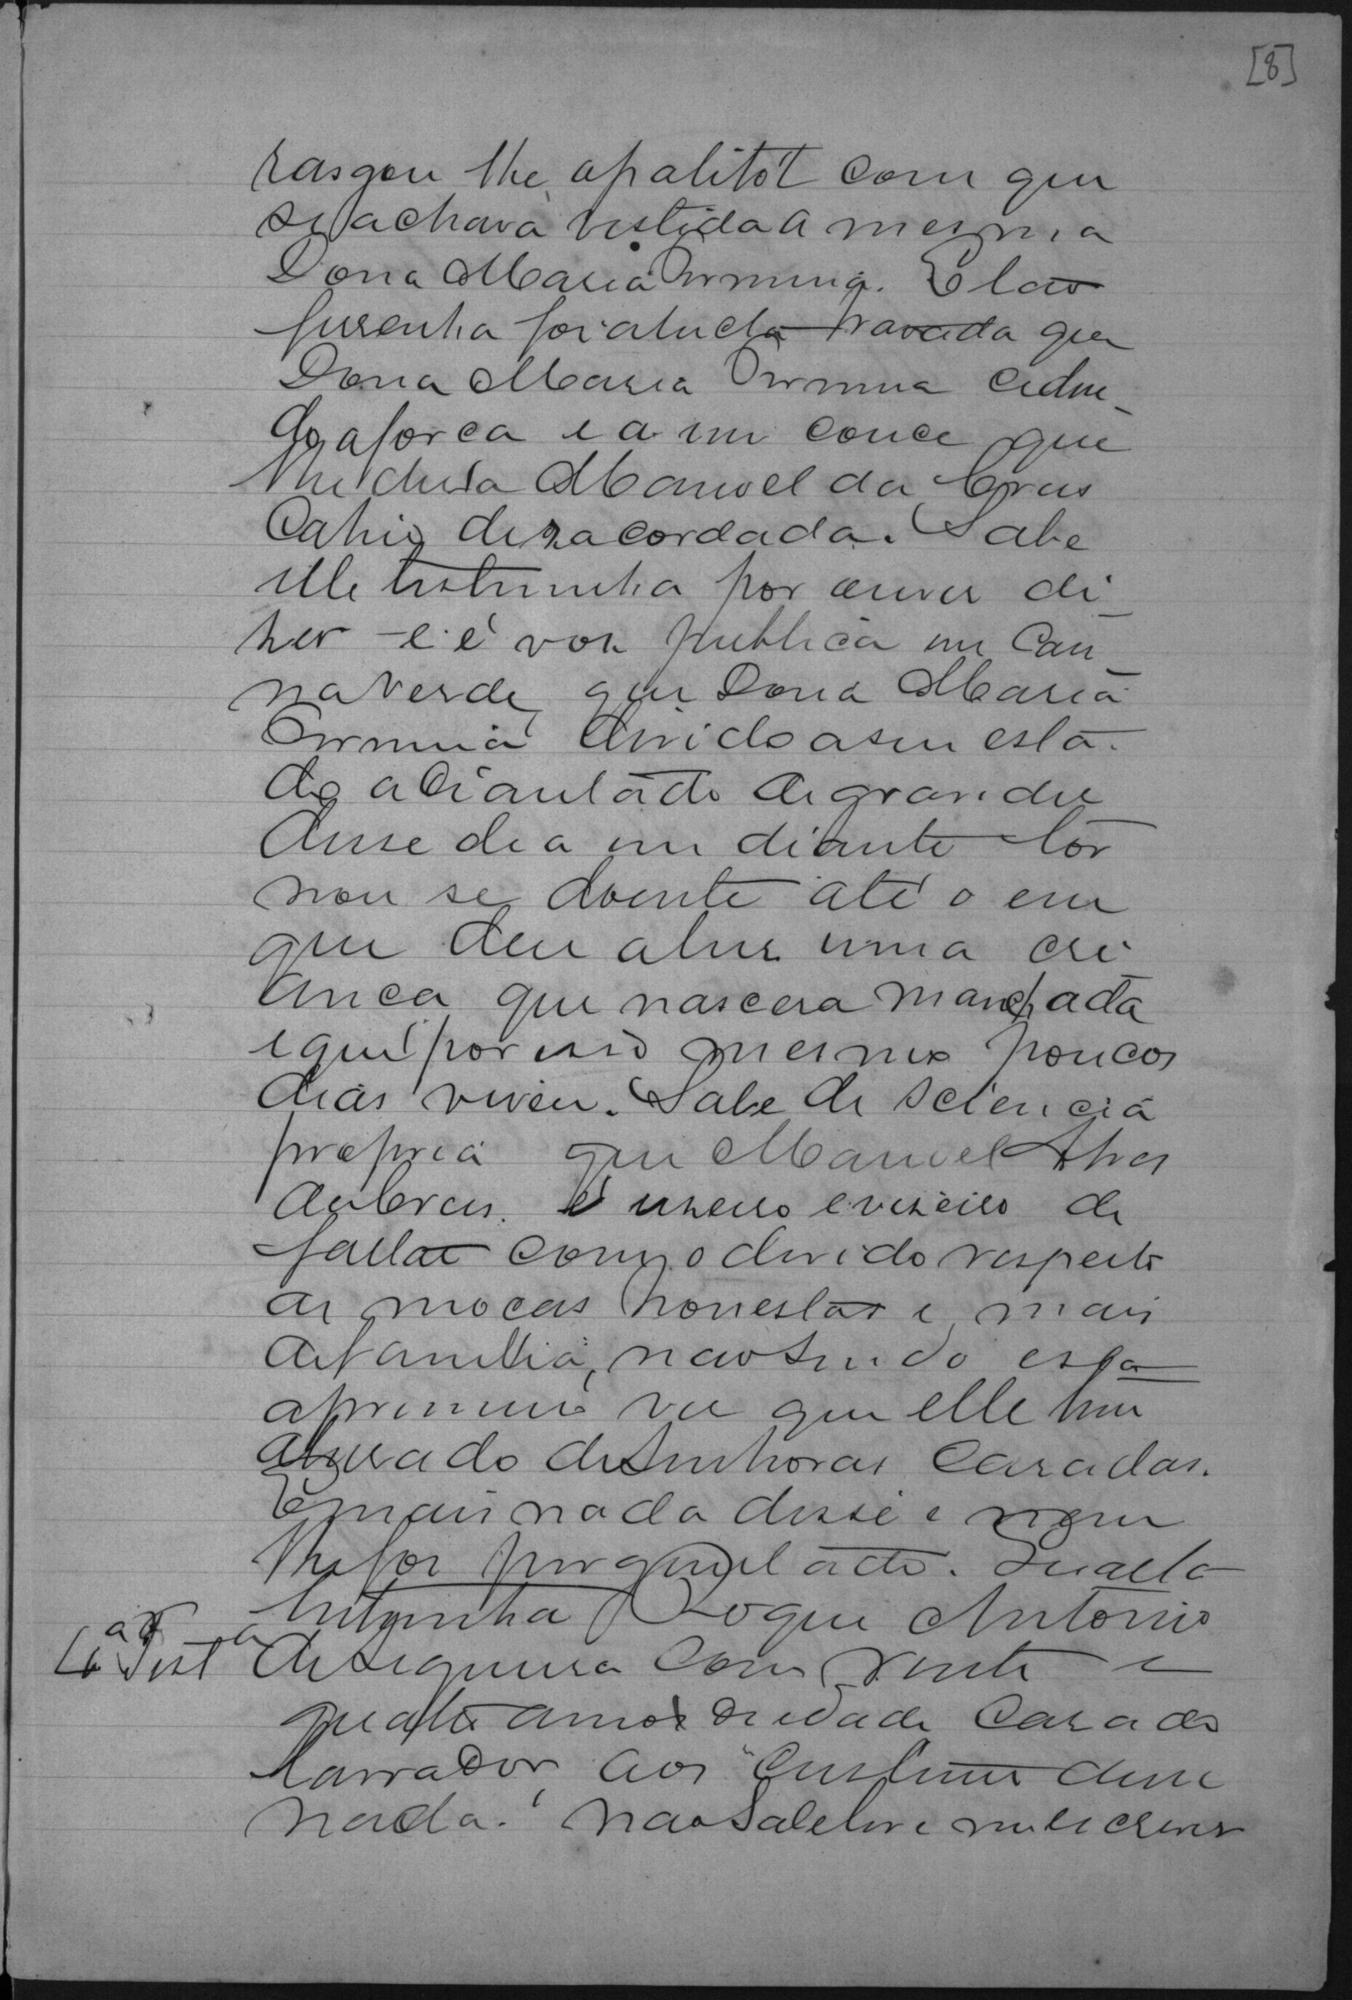 [8]
rasgou lhe apalitót com que
se achava vestida a mesma
Dona Maria Firmina. E tao
furenha foi a lucta travada que
Dona Maria Firmina ceden-
do a forca e a um couce que
lhe dera Manoel da Crus
Cahio desacordada. Sabe
elle testimunha por ouvir di-
zer e é vos publica em Can-
na Verde, que Dona Maria
Firmina devido a seu esta-
do adiantado de gravides
desse dia em diante tor
nou se doente até o em
que deu a lus uma cri
anca que nascera manchada
e que por isso mesmo poucos
dias viveu. Sabe de sciencia
propria que Manoel Alves
da Crus é useiro e viseiro de
faltar com o devido respeito
as mocas honestas e mais
de familia, nao sendo esta
a primeira ves que elle tem
abusado de senhoras casadas.
E mais nada disse e nem
lhe foi perguntado. Quarta
testimunha Roque Antonio
4a Testa de Siqueira com vinte e
quatro annos de idade casado
lavrador, aos custumes disse
nada. nao sabe ler e nem escrever